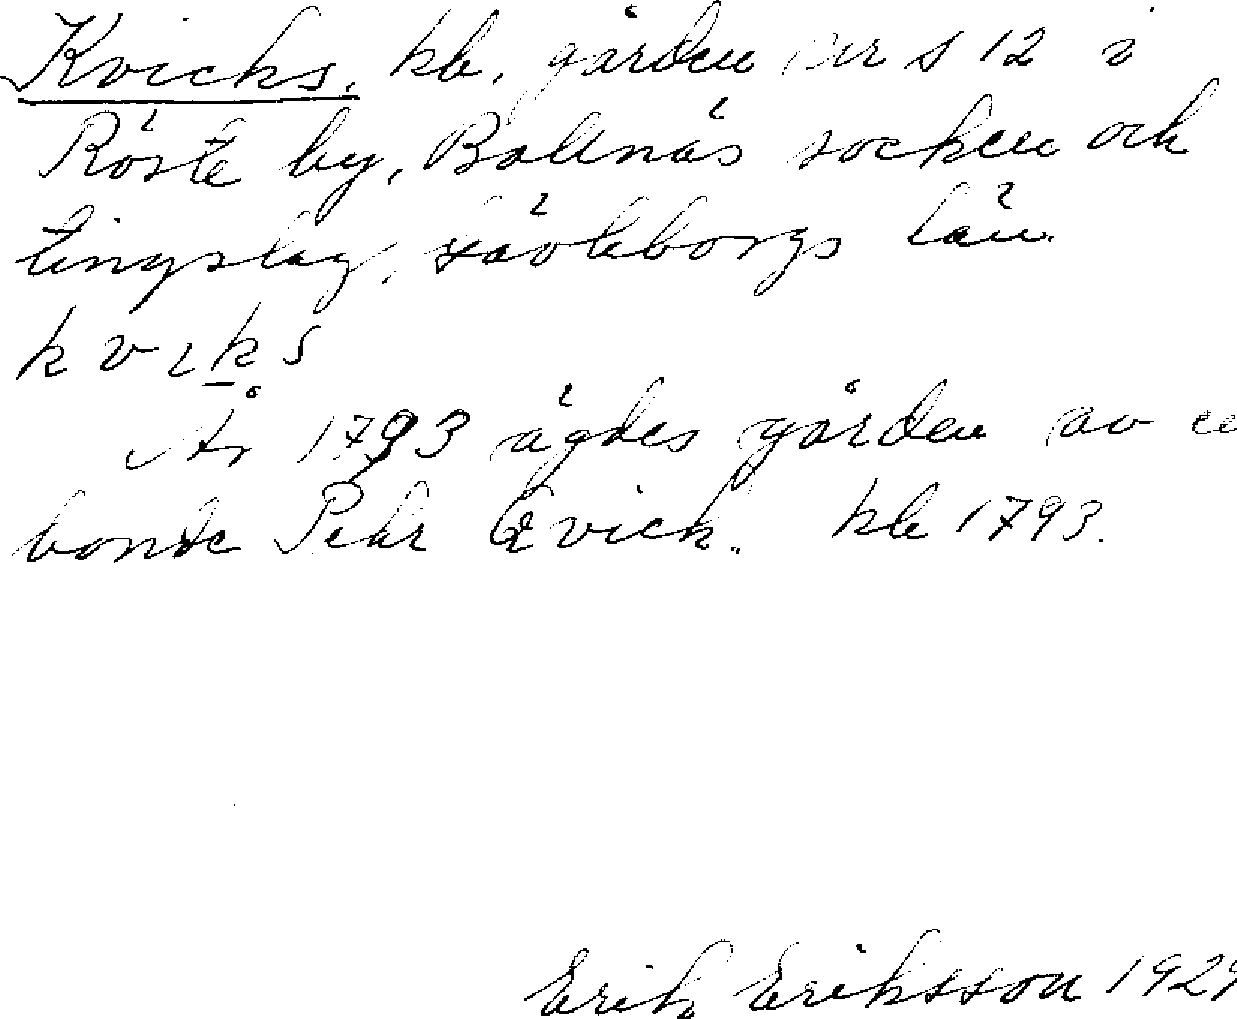 Kvicks, kb. gården nr s 12 i
Röste by, Bollnäs socken och
tingslag, Gävleborgs län.
kviks
År 1793 ägdes gården av
bonde Pehr Qvick. kb 1793.
Erik Eriksson 1929